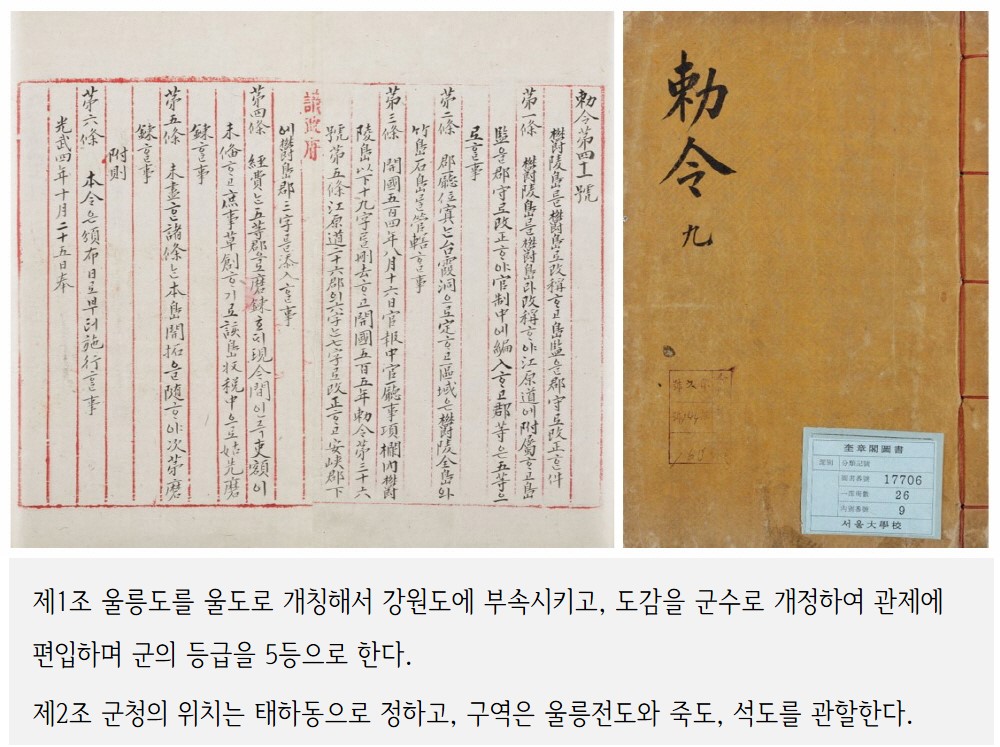 勅令第四十一號
鬱陵島를鬱島로改稱ᄒᆞ고島監을郡守로改正ᄒᆞᆫ件
第一條 鬱陵島를鬱島라改稱ᄒᆞ야江原道에附屬ᄒᆞ고島
監을郡守로改正ᄒᆞ야官制中에編入ᄒᆞ고郡等은五等으
로ᄒᆞᆯ事
第二條 郡廳位寘는台霞洞으로定ᄒᆞ고區域은鬱陵全島와
竹島石島를管轄ᄒᆞᆯ事
第三條 開國五百四年八月十六日官報中官廳事項欄內鬱
陵島以下十九字를刪去ᄒᆞ고開國五百五年勅令第三十六
號第五條江原道二十六郡의六字는七字로改正ᄒᆞ고安峽郡下
議政府
에鬱島郡三字를添入ᄒᆞᆯ事
第四條 經費는五等郡으로磨鍊호ᄃᆡ現今間인즉吏額이
未備ᄒᆞ고庶事草創ᄒᆞ기로該島收稅中으로姑先磨
鍊ᄒᆞᆯ事
第五條 未盡ᄒᆞᆫ諸條는本島開拓을隨ᄒᆞ야次第磨
鍊ᄒᆞᆯ事
附則
第六條 本令은頒布日로부터施行ᄒᆞᆯ事
光武四年十月二十五日奉
勅令 九
奎章閣圖書
分類記號
圖書番號 17706
一部冊數 26
內冊番號 9
서울大學校
제1조 울릉도를 울도로 개칭해서 강원도에 부속시키고, 도감을 군수로 개정하여 관제에
편입하며 군의 등급을 5등으로 한다.
제2조 군청의 위치는 태하동으로 정하고, 구역은 울릉전도와 죽도, 석도를 관할한다.